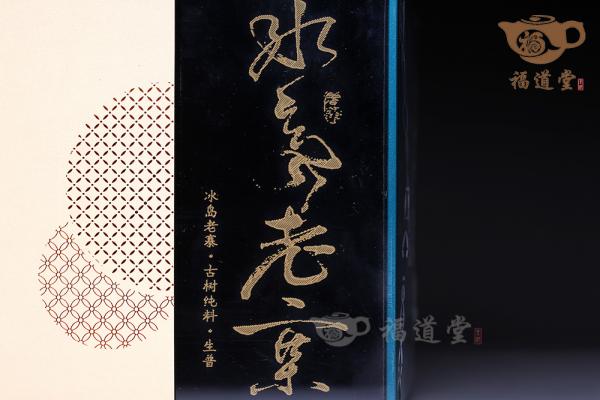 冰岛老寨
冰岛老寨•古树纯料•生普
福道堂
福道堂